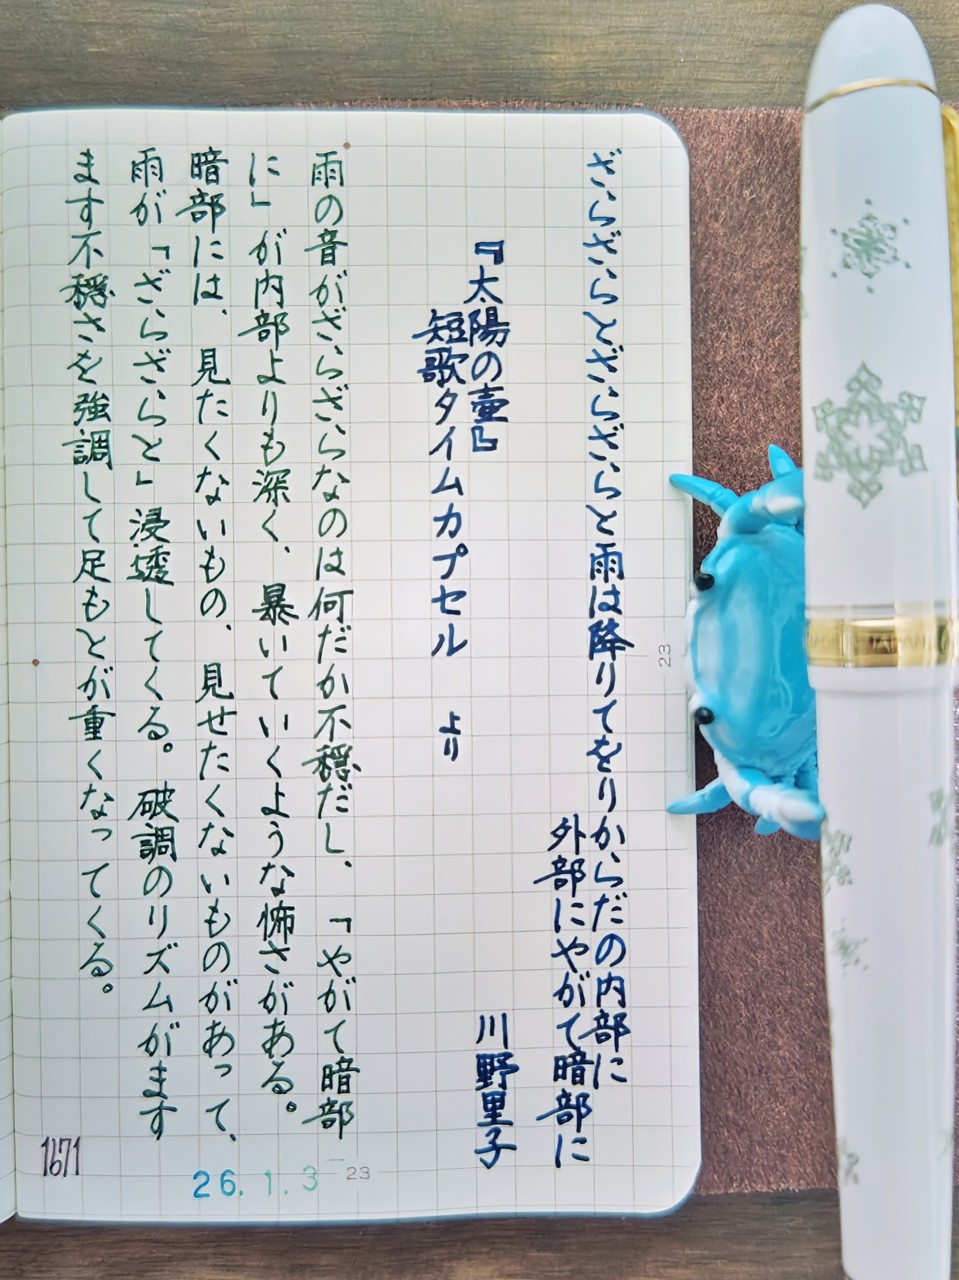 ざらざらとざらざらと雨は降りてをりからだの内部に
外部にやがて暗部に
『太陽の壷』
短歌タイムカプセル より
川野里子
雨の音がざらざらなのは何だか不穏だし、「やがて暗部
に」が内部よりも深く、暴いていくような怖さがある。
暗部には、見たくないもの、見せたくないものがあって、
雨が「ざらざらと」浸透してくる。破調のリズムがます
ます不穏さを強調して足もとが重くなってくる。
23
1671
26.1.3
23